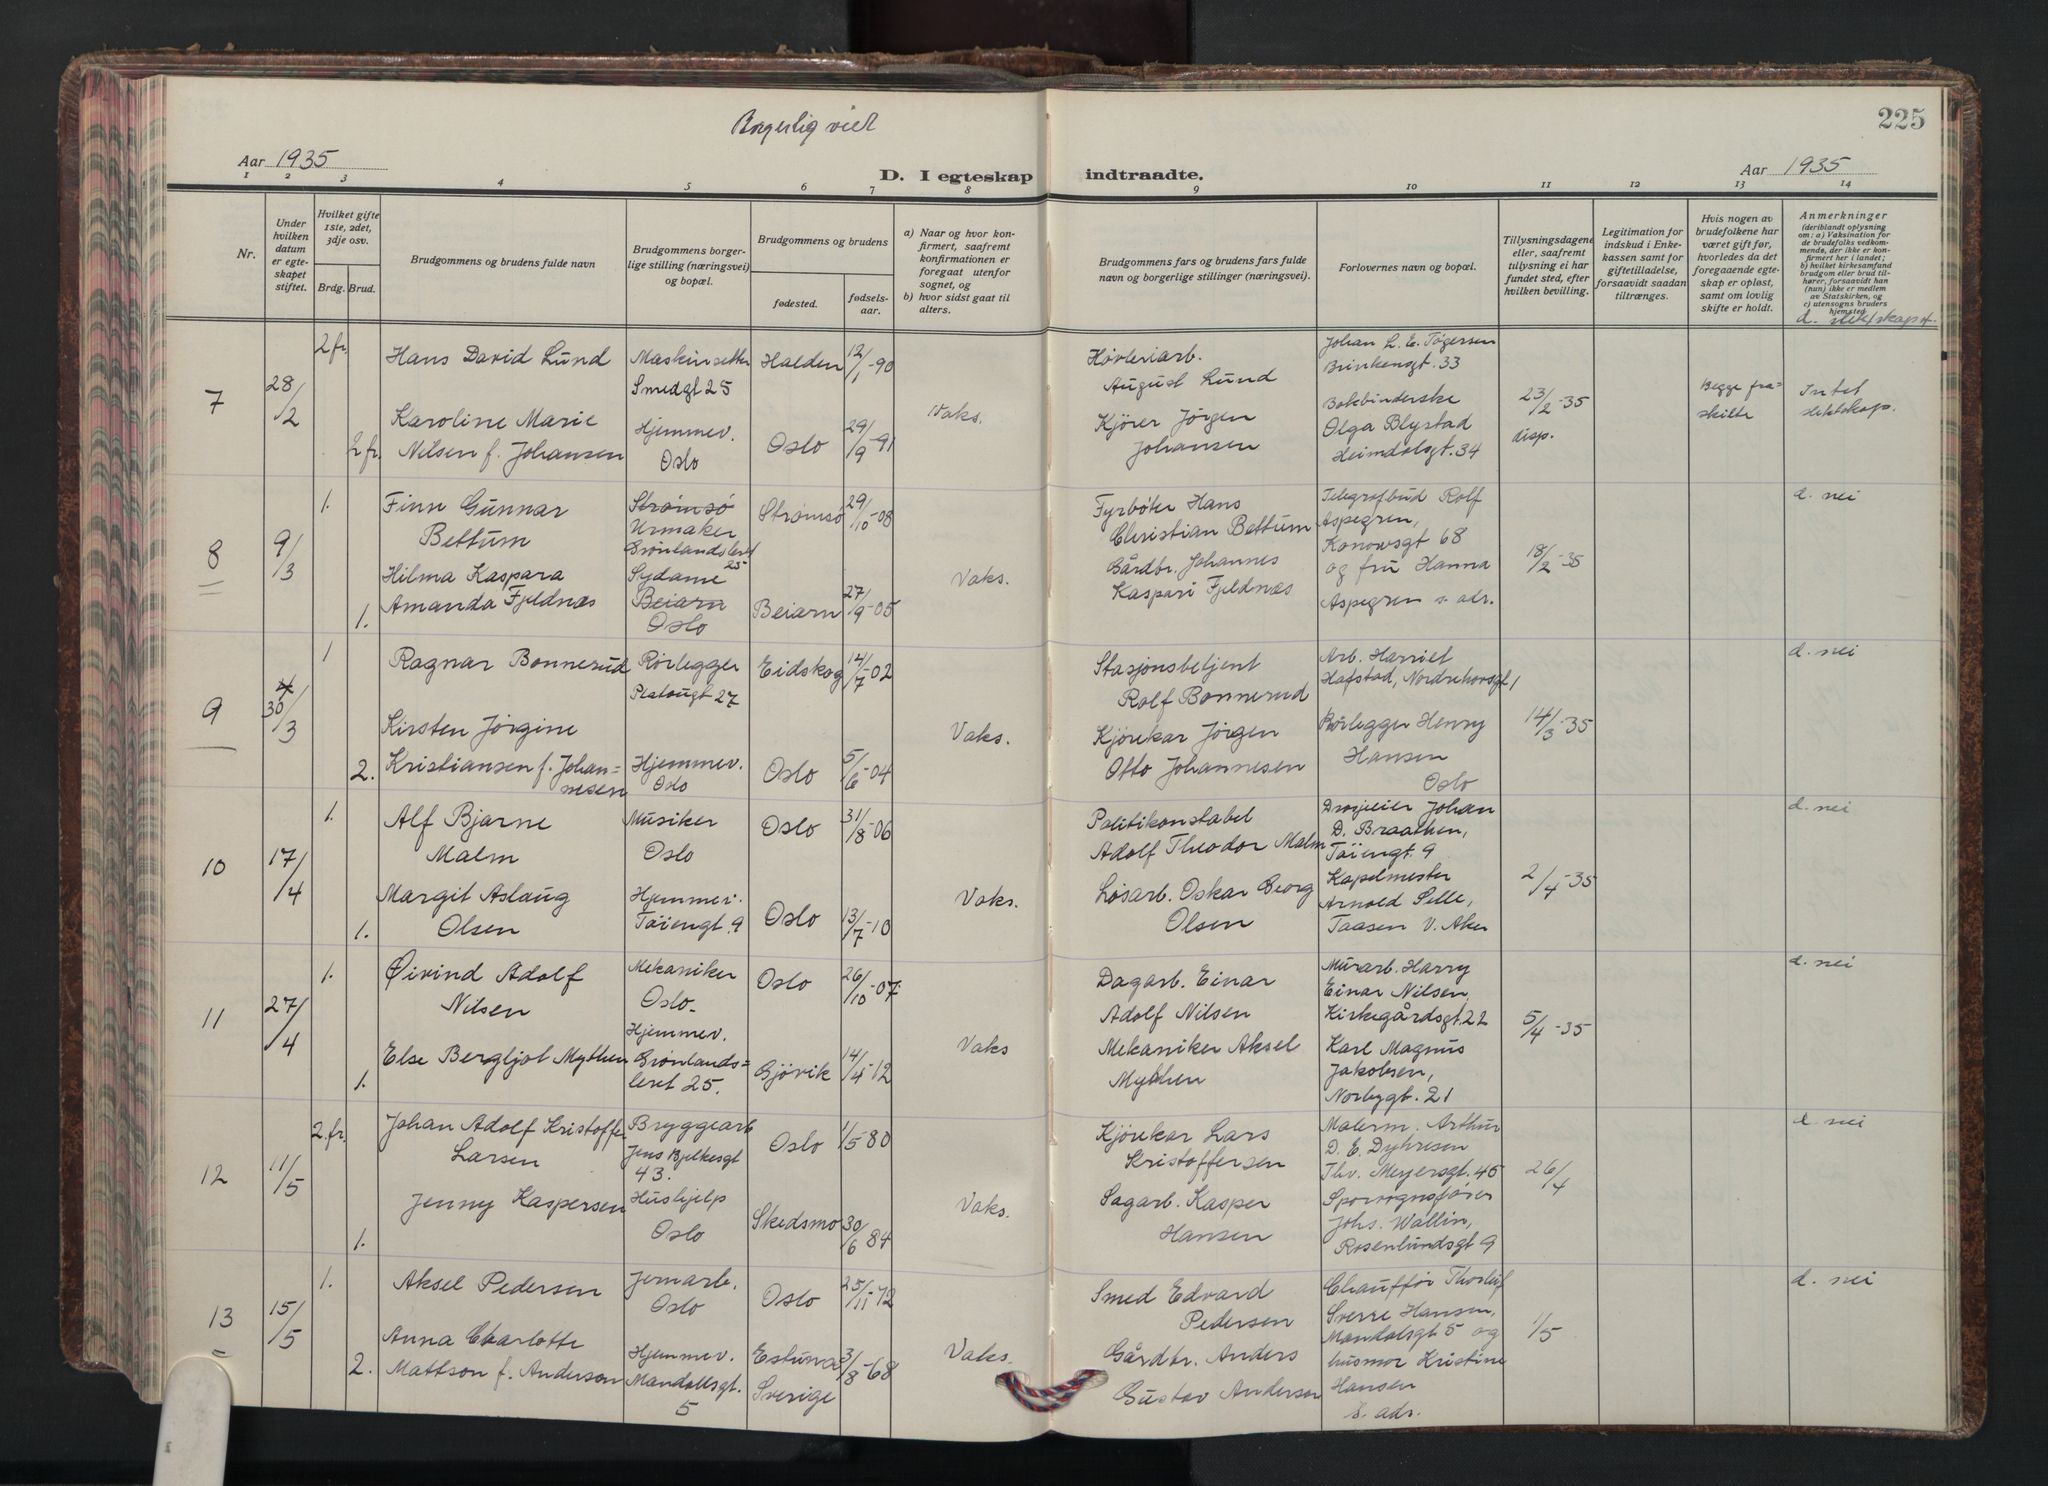 Borgerlig viet
225
Aar 1935
D. I egteskap indtraadte.
Aar 1935
1 2 3 4 5 6 7 8 9 10 11 12 13 14
Nr.
Under hvilken datum er egteskapet stiftet.
Hvilket gifte 1ste, 2det, 3dje osv.
Brdg. Brud.
Brudgommens og brudens fulde navn
Brudgommens borgerlige stilling (næringsvei) og bopæl.
Brudgommens og brudens
fødested.
fødselsaar.
a) Naar og hvor konfirmert, saafremt konfirmationen er foregaat utenfor sognet, og
b) hvor sidst gaat til alters.
Brudgommens fars og brudens fars fulde navn og borgerlige stillinger (næringsvei).
Forlovernes navn og bopæl.
Tillysningsdagene eller, saafremt tillysning ei har fundet sted, efter hvilken bevilling.
Legitimation for indskud i Enkekassen samt for giftetilladelse, forsaavidt saadan tiltrænges.
Hvis nogen av brudefolkene har været gift før, hvorledes da det foregaaende egteskap er opløst, samt om lovlig skifte er holdt.
Anmerkninger (deriblandt oplysning om: a) Vaksination for de brudefolks vedkommende, der ikke er konfirmert her i landet; b) hvilket kirkesamfund brudgom eller brud tilhører, forsaavidt han (hun) ikke er medlem av Statskirken, og c) utensogns bruders hjemsted.
d. slektskap
7
28/2
2 fr.
Hans David Lund
Maskinsetter
Smedgt 25
Halden
12/1-90
2 fr.
Karoline Marie
Nilsen f. Johansen
Hjemmev.
Oslo
Oslo
29/9-91
Vaks.
Høvleriarb.
August Lund
Kjører Jørgen
Johansen
Johan L. E. Tøgersen
Brinkensgt. 33
Bokbinderske
Olga Blystad
Heimdalsgt. 34
23/2-35
disp.
Begge fra-
skilte
Intet
slektskap.
8
9/3
1.
Finn Gunnar
Bettum
Strømsø
Urmaker
Grønlandsleret
25
Strømsø
29/10-08
1.
Hilma Kaspara
Amanda Fjeldnæs
Sydame
Beiarn
Oslo
Beiarn
27/9-05
Vaks.
Fyrbøter Hans
Christian Bettum
Gårdbr. Johannes
Kaspari Fjeldnæs
Telegrafbud Rolf
Aspegren,
Konowsgt 68
og fru Hanna
Aspegren s. adr.
18/2-35
d. nei
9
30/3
1
Ragnar Bonnerud
Rørlegger
Platougt 27
Eidskog
14/7-02
2.
Kirsten Jørgine
Kristiansen f. Johan-
nesen
Hjemmev.
Oslo
Oslo
5/6-04
Vaks.
Stasjonsbetjent
Rolf Bonnerud
Kjørekar Jørgen
Otto Johannesen
Arb. Harriet
Hafstad, Nordrehovsgt 1
Rørlegger Henry
Hansen
Oslo
14/3-35
d. nei
10
17/4
1.
Alf Bjarne
Malm
Musiker
Oslo
Oslo
31/8-06
1.
Margit Aslaug
Olsen
Hjemmev.
Tøiengt. 9
Oslo
13/7-10
Vaks.
Politikonstabel
Adolf Theodor Malm
Løsarb. Oskar Georg
Olsen
Drosjeeier Johan
D. Braathen,
Tøiengt. 9
Kapelmester
Arnold Selle,
Taasen V. Aker
2/4-35
d. nei
11
27/4
1.
Øivind Adolf
Nilsen
Mekaniker
Oslo.
Oslo
26/10-07
1.
Else Bergljot Mythen
Hjemmev.
Grønlands-
leret 25.
Gjøvik
14/4-12
Vaks
Dagarb. Einar
Adolf Nilsen
Mekaniker Aksel
Mythen
Murarb. Harry
Einar Nilsen,
Kirkegårdsgt. 22
Karl Magnus
Jakobsen,
Norbygt. 21
5/4-35
d. nei
12
11/5
2. fr.
Johan Adolf Kristoffer
Larsen
Bryggearb
Jens Bjelkesgt
43.
Oslo
1/5-80
1.
Jenny Kaspersen
Hushjelp
Oslo
Skedsmo
30/6 84
Vaks.
Kjørekar Lars
Kristoffersen
Sagarb. Kasper
Hansen
Malerm. Arthur
D. E. Dyhresen
Thv. Meyersgt. 45
Sporvognsfører
Johs. Wallin,
Rosenlundsgt 9
26/4
d. nei
13
15/5
1.
Aksel Pedersen
Jernarb.
Oslo
Oslo
25/11-72
2.
Anna Charlotte
Mattson f. Anderson
Hjemmev.
Mandalsgt.
5
Estuna
Sverige
3/8-68
Vaks.
Smed Edvard
Pedersen
Gårdbr. Anders
Gustav Anderson
Chauffør Thorleif
Sverre Hansen,
Mandalsgt 5 og
husmor Kristine
Hansen
s. adr.
1/5
d. nei